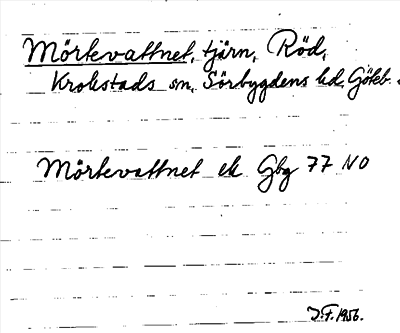 Mörtevattnet, tjärn, Röd,
Krokstads sn, Sörbygdens hd, Göteb.
Mörtevattnet ek Gbg 77 NO
J.F. 1956.